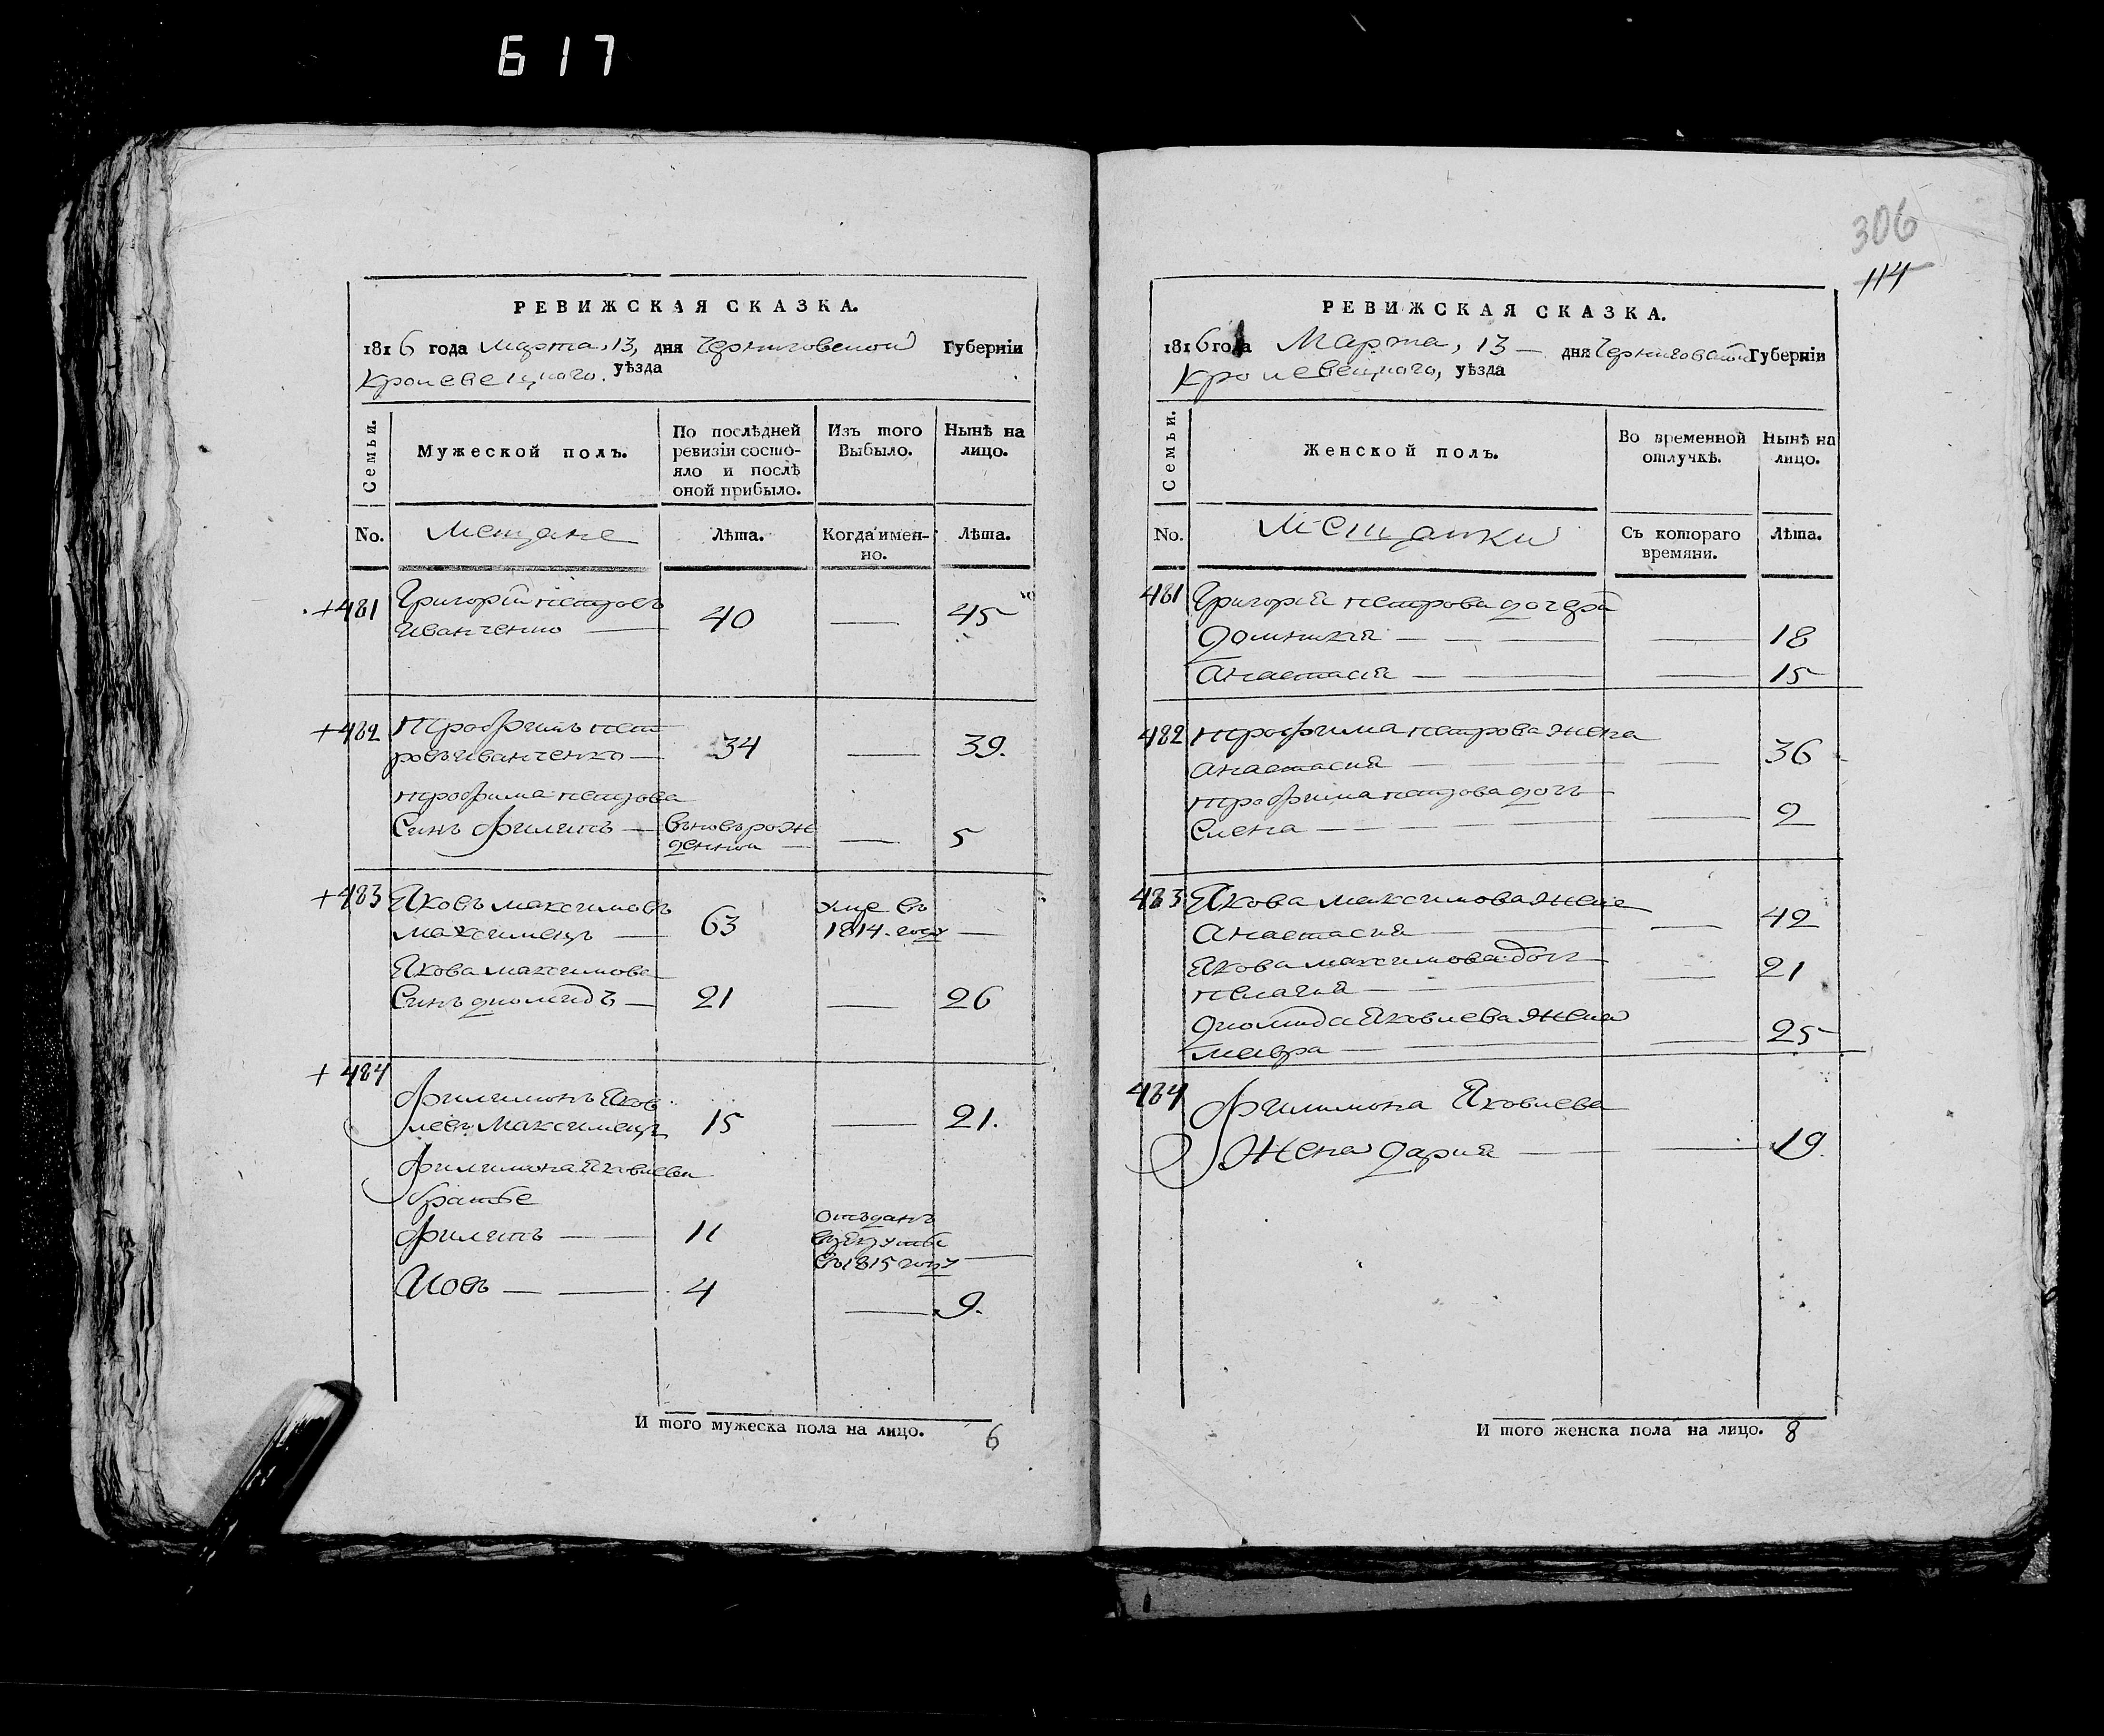 617
РЕВИЖСКАЯ СКАЗКА.
1816 года Марта, 13, дня Черниговской Губерніи
Кролевецкаго. уѣзда
Семьи.
Мужеской полъ.
По послѣдней ревизіи состо-
яло и послѣ
оной прибыло.
Изъ того
Выбыло.
Нынѣ на
лицо.
No.
Мещане
Лѣта.
Когда имен-
но.
Лѣта.
+481 Григорій Петровъ
Иванченко — 40 — 45
+482 Трофимъ Пет
ровъ Иванченко — 34 — 39.
Трофима Петрова
Синъ Филипъ — вьновь рож
денной — 5
+483 Яковъ Максимовъ
Максименко — 63 уме въ
1814. году —
Якова Максимова
Синъ Диомидъ — 21 — 26
+484
Филимонъ Яков
левъ Максименко 15 — 21.
Филимона Яковлева
братье
Филипъ — 11 отъданъ
въ рекруты
въ 1815 году —
Иовъ — 4 — 9.
И того мужеска пола на лицо. 6
306
114
РЕВИЖСКАЯ СКАЗКА.
1816 года Марта, 13 — дня Черниговской Губерніи
Кролевецкаго, уѣзда
Семьи.
Женской полъ.
Во временной
отлучкѣ.
Нынѣ на
лицо.
No.
Мещанки
Съ котораго
времяни.
Лѣта.
481 Григорія Петрова дочери
Домникія — — 18
Анастасія — — 15
482 Трофима Петрова жена
Анастасия — — 36
Трофима Петрова дочь
Елена — — 2
483 Якова Максимова жена
Анастасия — — 42
Якова Максимова дочь
Пелагия — — 21
Диомида Яковлева жена
Мавра — — 25
484 Филимона Яковлева
Жена Дария — — 19.
И того женска пола на лицо. 8